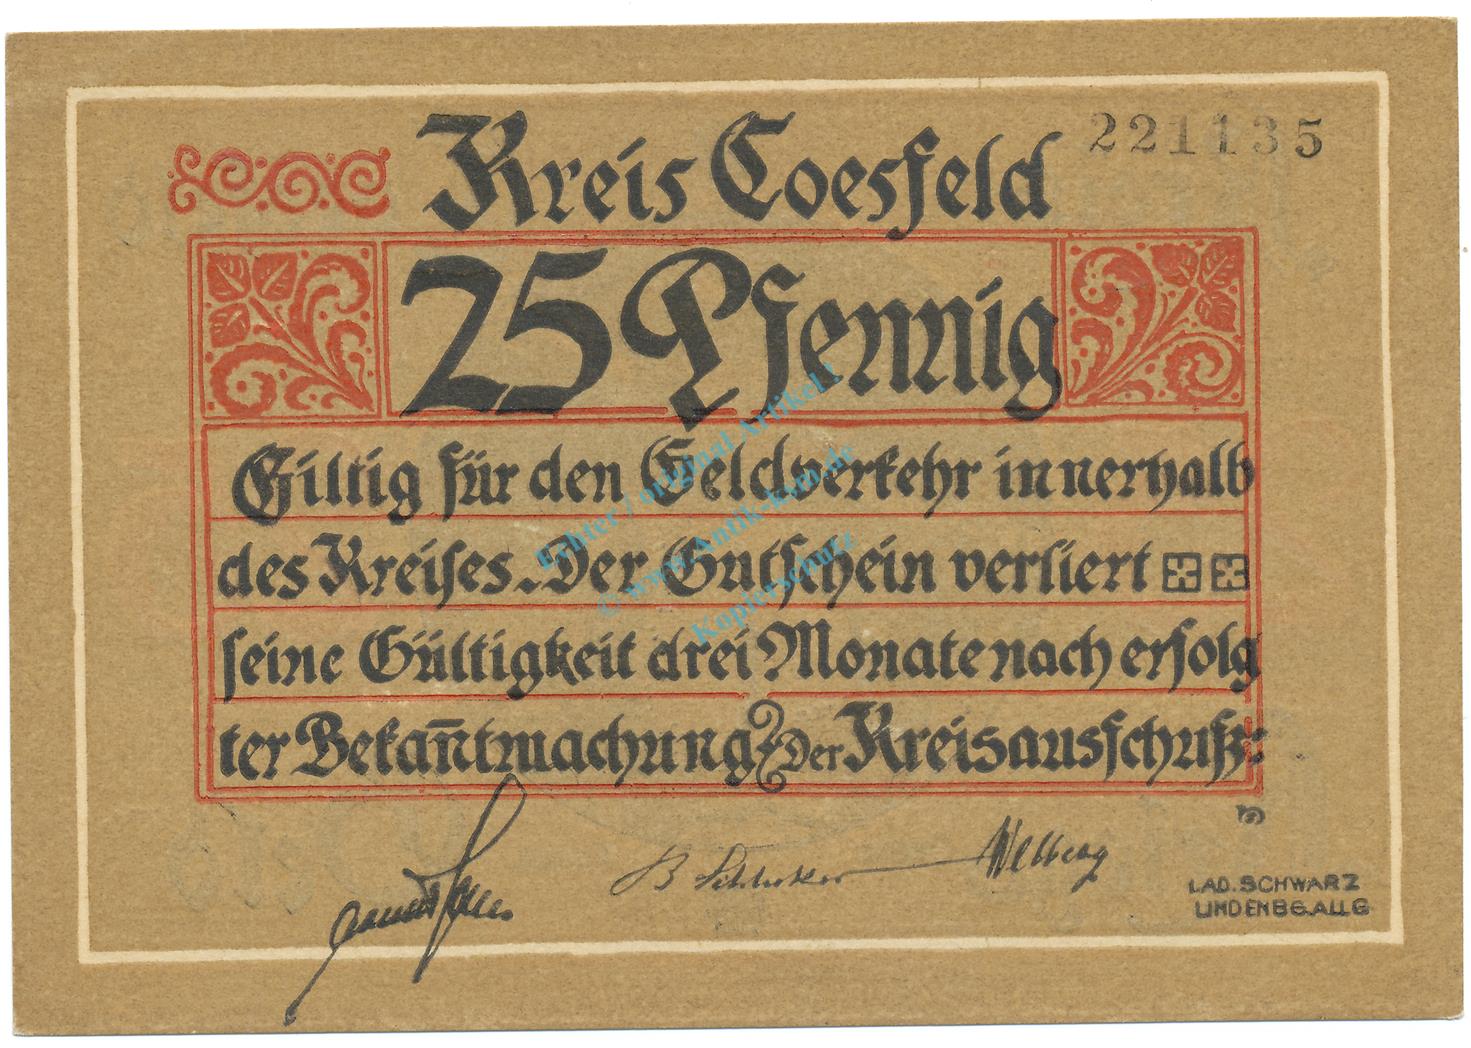 Kreis Coesfeld
221135
25 Pfennig
Giltig für den Geldverkehr innerhalb
des Kreises. Der Gutschein verliert
seine Gültigkeit drei Monate nach erfolg
ter Bekan̄tmachung Der Kreisausschuß:
LAD. SCHWARZ
LINDENBG. ALLG
Echter / original Artikel!
© www.Antik-ksm.de
Kopierschutz